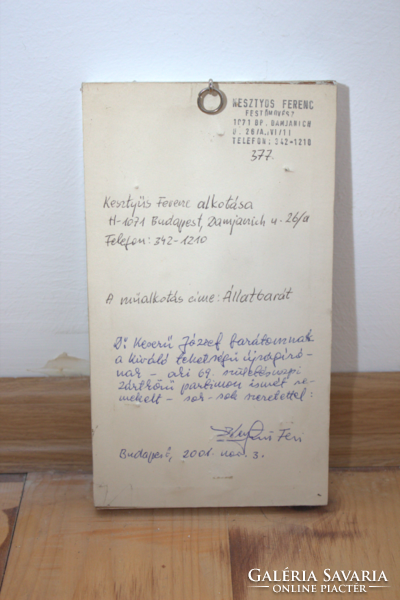 KESZTYÜS FERENC
FESTŐMŰVÉSZ
1071 BP. DAMJANICH
U. 26/A. VI/11
TELEFON: 342-1210
377.
Kesztyüs Ferenc alkotása
H-1071 Budapest, Damjanich u. 26/a
Telefon: 342-1210
A műalkotás címe: Állatbarát
Dr Keserű József barátomnak
a kiváló tehetségű újságíró-
nak - aki 69. születésnapi
zártkörű partimon ismét re-
mekelt - sok-sok szeretettel:
Feri
Budapest, 2001. nov. 3.
GALÉRIA SAVARIA
ONLINE PIACTÉR